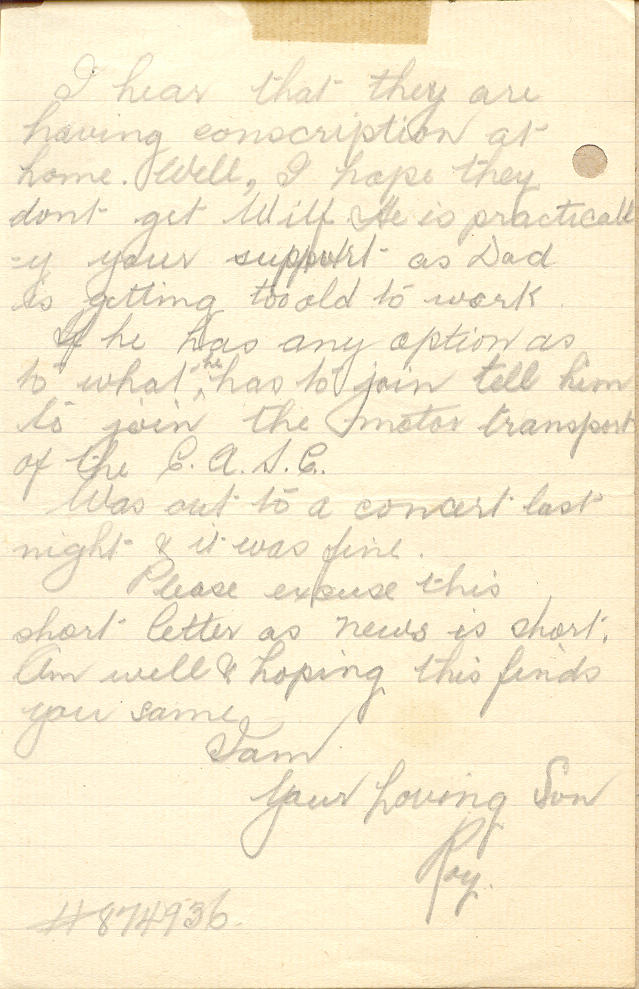 I hear that they are
having conscription at
home. Well, I hope they
dont get Wilf. He is practicall
-y your support as Dad
is getting too old to work.
If he has any option as
to what he has to join tell him
to join the motor transport
of the C.A.S.C.
Was out to a concert last
night & it was fine.
Please excuse this
short letter as news is short.
Am well & hoping this finds
you same
I am
Your Loving Son
Roy.
#874936